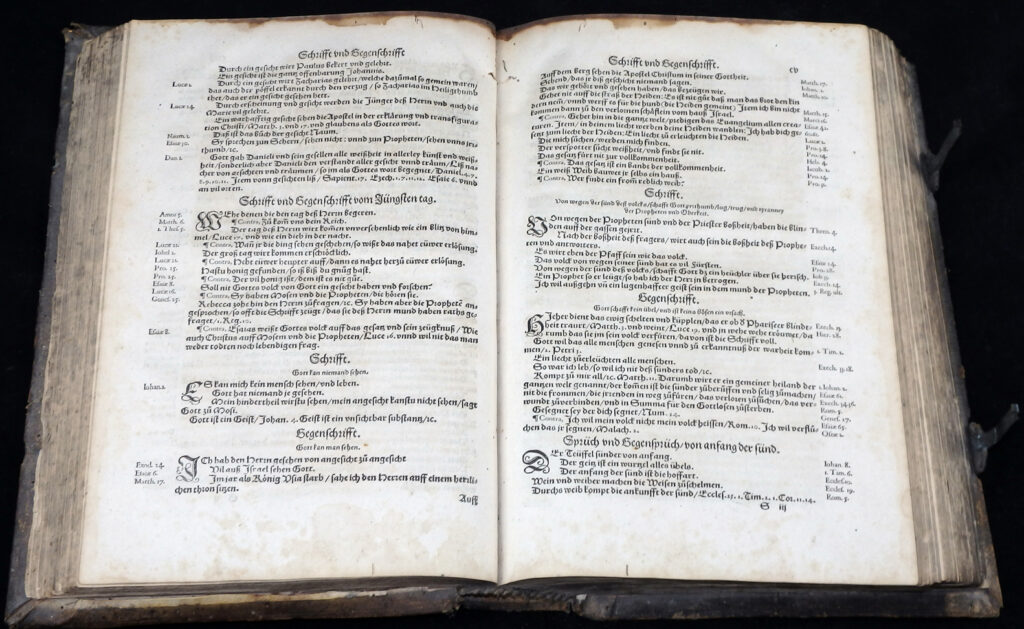 Schrifft vnd Gegenschrifft
Durch ein gesicht wirt Paulus bekert vnd gelehrt.
Ein gesicht ist die gantz offenbarung Johannis.
Durch ein gesicht wirt Zacharias gelehrt/welche dazůmal so gemein waren/
Luce 1.
das auch der pöffel erkante durch den verzug/so Zacharias im Heiligthumb
thet/das er ein gesicht gesehen hett.
Durch erscheinung vnd gesicht werden die Jünger deß Herrn vnd auch die
Luce 24.
Marie vil gelehrt.
Ein warhafftig gesicht sehen die Apostel in der erklärung vnd transfigura
tion Christi/Matth. 3. vnd 17. vnd glaubens als Gottes wort.
Daß ist das Bůch der gesicht Naum.
Naum. 1.
Sy sprechen zun Schern/sehen nicht: vnnd zun Propheten/sehen vnns jrr
Esaie 30.
thumb/ꝛc.
Gott gab Danieli vnd sein gesellen alle weißheit in allerley künst vnd weiß-
Dan. 1.
heit/sonderlich aber Danieli den verstandt aller gesicht vnnd träum/Liß nach
her von gesichten vnd träumen/so im als Gottes wort begegnet/Daniel. 4. 7.
8. 9. 10. 11. Item vonn gesichten liß/Sapient. 17. Ezech. 1. 7. 11. 12. Esaie 6. vnnd
an vil orten.
Schrifft vnd Gegenschrifft vom Jüngsten tag.
WEhe denen die den tag deß Herrn begeren.
Amos 5.
¶ Contra. Zů kom vns dein Reich.
Matth. 6.
Der tag deß Herrn wirt komen vnversehenlich wie ein Blitz von him-
1. Thess. 5.
mel/Luce 17. vnd wie ein dieb in der nacht.
¶ Contra. Wañ jr die ding sehen geschehen/so wißt das nahet eüwer erlösung.
Luce 21.
Der groß tag wirt kommen erschröcklich.
Johel 2.
¶ Contra. Hebt eüwer heupter auff/dann es nahet herzů eüwer erlösung.
Luce 21.
Hastu honig gefunden/so iß biß du gnůg hast.
Pro. 25.
¶ Contra. Der vil honig ißt/dem ist es nit gůt.
Pro. 25.
Soll nit Gottes volck von Gott ein gesicht haben vnd forschen?
Esaie 8.
¶ Contra. Sy haben Mosen vnd die Propheten/die hören sie.
Luce 16.
Rebecca zohe hin den Herrn zůfragen/ꝛc. Sy haben aber die Prophetẽ an-
Genes. 25.
gesprochen/so offt die Schrifft zeügt/das sie deß Herrn mund haben raths ge-
fraget/1. Reg. 10.
¶ Contra. Esaias weißt Gottes volck auff das gesatz vnd sein zeügknuß/Wie
Esaie 8.
auch Christus auff Mosen vnd die Propheten/Luce 16. vnnd wil nit das man
weder todten noch lebendigen frag.
Schrifft.
Gott kan niemand sehen.
ES kan mich kein mensch sehen/vnd leben.
Johan. 1.
Gott hat niemand je gesehen.
Mein hindertheil wirstu sehen/mein angesicht kanstu nicht sehen/sagt
Gott zů Mosi.
Gott ist ein Geist/Johan. 4. Geist ist ein vnsichtbar substantz/ꝛc.
Gegenschrifft.
Gott kan man sehen.
ICh hab den Herrn gesehen von angesicht zů angesicht
Exod. 24.
Vil auß Israel sehen Gott.
Esaie 6.
Im jar als König Vsia starb/sahe ich den Herren auff einem herrli-
Matth. 17.
chen thron sitzen.
Auff
Schrifft vnd Gegenschrifft.
cv
Auff dem berg sehen die Apostel Christum in seiner Gottheit.
Matth. 17.
Sehend/das jr diß geschicht niemand sagen.
Das wir gehört vnd gesehen haben/das bezeügen wir.
Johan. 1.
Geht nit auff die straß der Heiden: Es ist nit gůt daß man das brot den kin
Matth. 10.
dern nem/vnnd werff es für die hund (die Heiden gemeint) Item ich bin nicht
kommen dann zů den verlornen schäfflein vom hauß Israel.
Matth. 15.
¶ Contra. Gehet hin in die gantz welt/predigen das Euangelium allen crea-
turen. Item/in deinem liecht werden die Heiden wandlen: Ich hab dich ge-
Esaie 42.
setzt zum liecht der Heiden: Ein liecht zů erleüchten die Heiden.
Luce 2.
Die mich sůchen/werden mich finden.
Der verspotter sůcht weißheit/vnd findt sie nit.
Das gesatz fürt nit zur vollkommenheit.
¶ Contra. Das gesatz ist ein Bande der vollkommenheit.
Ein weiß Weib bauwet jr selbs ein hauß.
Pro. 14.
¶ Contra. Wer findt ein from redlich weib?
Schrifft.
Von wegen der sünd deß volcks/schafft Gott jrrthumb/lug/trug/vnd tyranney
der Propheten vnd Oberkeit.
VOn wegen der Propheten sünd vnd der Priester boßheit/haben die Blin-
Thren. 4.
den auff der gassen geirrt.
Nach der boßheit deß fragers/wirt auch sein die boßheit deß Prophe-
Ezech. 14.
ten vnd antworters.
Es wirt eben der Pfaff sein wie das volck.
Esaie 24.
Das volck von wegen seiner sünd hat es vil Fürsten.
Pro. 28.
Von wegen der sünd deß volcks/schafft Gott dz ein heüchler über sie hersch.
Ein Prophet so er leügt/so hab ich der Herr jn betrogen.
Ezech. 14.
Ich wil außgehn vñ ein lugenhaffter geist sein in dem mund der Propheten.
3. Reg. vlt.
Gegenschrifft.
Gott schafft kein übel/vnd ist keins bösen ein vrsach.
Matth. 3. vnd weint/Luce 19. vnd
Gott wil das alle menschen genesen vnnd zů erkanntnuß der warheit kom-
1. Tim. 2.
men/2. Petri 3.
Ein liecht zůerleüchten alle menschen.
So war ich leb/so wil ich nit deß sünders tod/ꝛc.
Ezech. 33. 18.
Kompt zů mir all/ꝛc. Matth. 11. Darumb wirt er ein gemeiner heiland der
1. Johan. 2.
gantzen welt genannt/der komen ist die sünder zůberüffen vnd selig zůmachen/
Esaie 61.
nit die frommen/die jrrenden in weg zůfüren/das verloren zůsůchen/das ver-
Ezech. 34.
wundt zůverbinden/vnd in Summa für den Gottlosen zůsterben.
Rom. 5.
Gesegnet sey der dich segnet/Num. 24.
Genes. 27.
¶ Contra. Ich wil mein volck nicht mein volck heissen/Rom. 10. Ich wil verflů-
Esaie 65.
chen das jr segnen/Malach. 2.
Osee 1.
Sprüch vnd Gegensprüch/von anfang der sünd.
DEr Teüffel sündet von anfang.
Johan. 8.
Der geitz ist ein wurtzel alles übels.
1. Tim. 6.
Der anfang der sünd ist die hoffart.
Eccles. 10.
Wein vnd weiber machen die Weisen zůschelmen.
Eccles. 19.
Durchs weib kompt die ankunfft der sünd/Eccles. 25. 1. Tim. 2. 1. Cor. 11. 14.
Rom. 5.
S iij